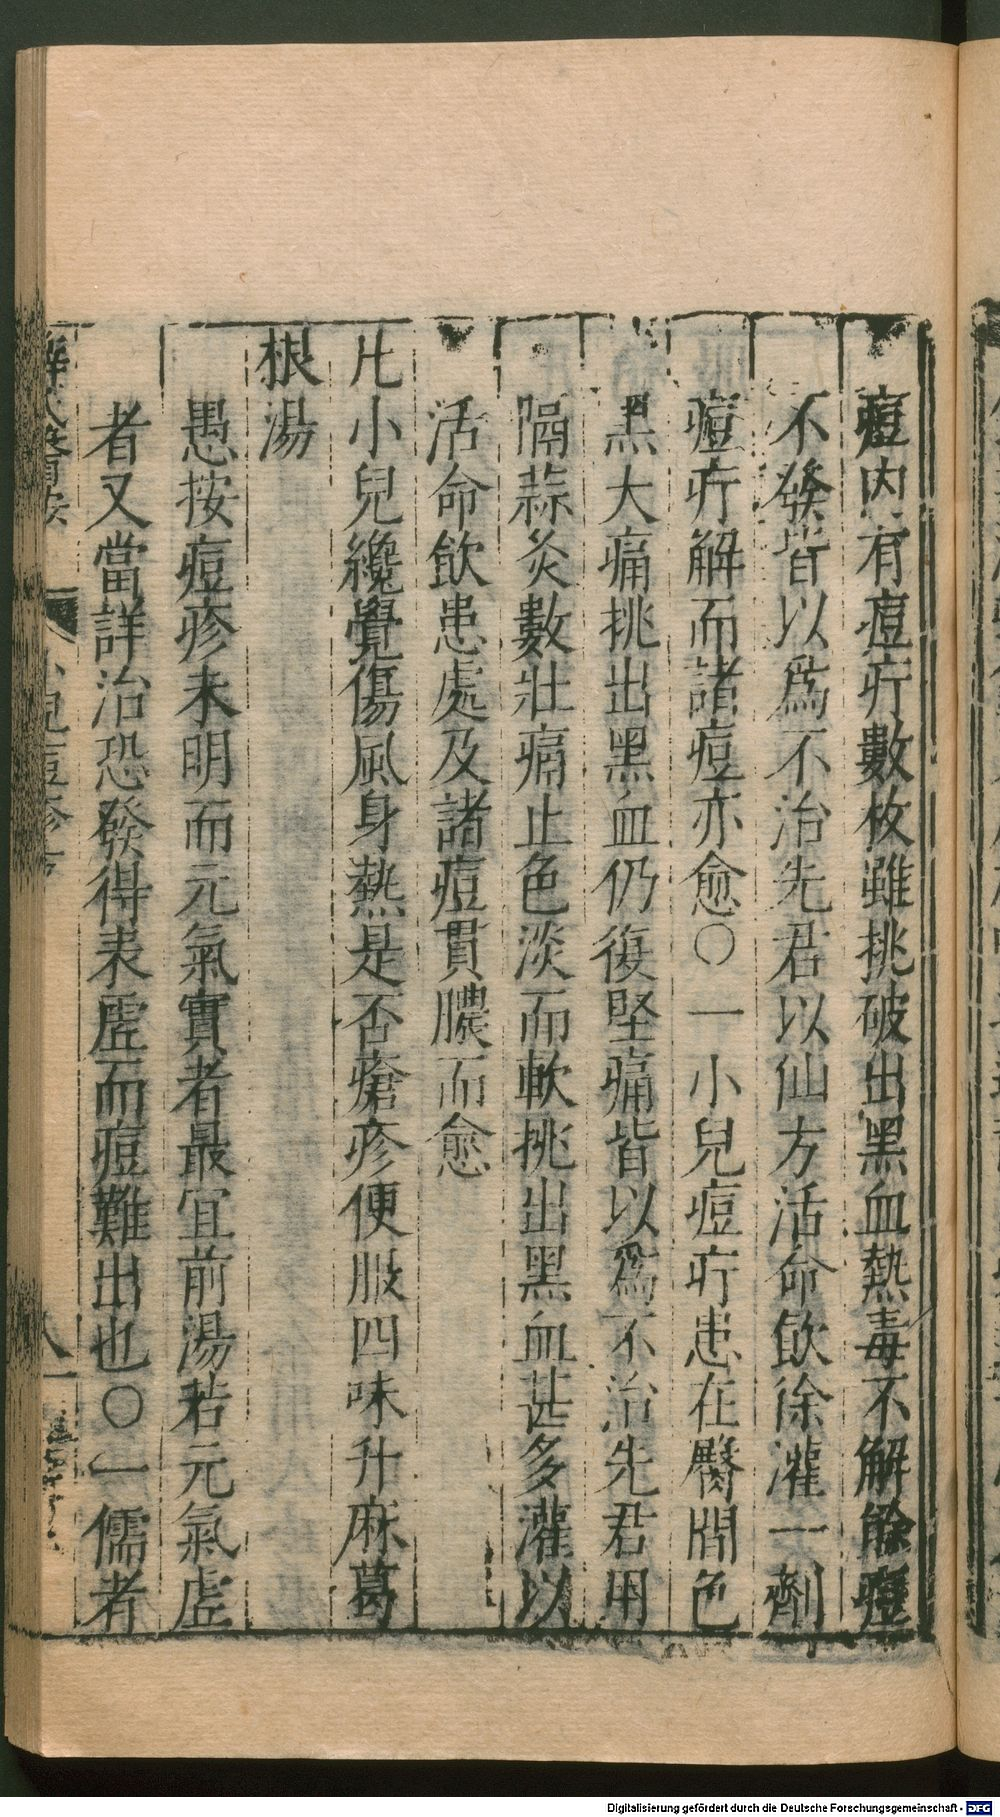 痘内有痘疔數枚雖挑破出黑血熱毒不解餘痘
不發皆以爲不治先君以仙方活命飲徐灌一劑
痘疔解而諸痘亦愈○一小兒痘疔患在臀間色
黑大痛挑出黑血仍復堅痛皆以爲不治先君用
隔蒜灸數壯痛止色淡而軟挑出黑血甚多灌以
活命飲患處及諸痘貫膿而愈
凡小兒纔覺傷風身熱是否瘡疹便服四味升麻葛
根湯
愚按痘疹未明而元氣實者最宜前湯若元氣虛
者又當詳治恐發得表虛而痘難出也○一儒者
小兒痘疹
Digitalisierung gefördert durch die Deutsche Forschungsgemeinschaft - DFG